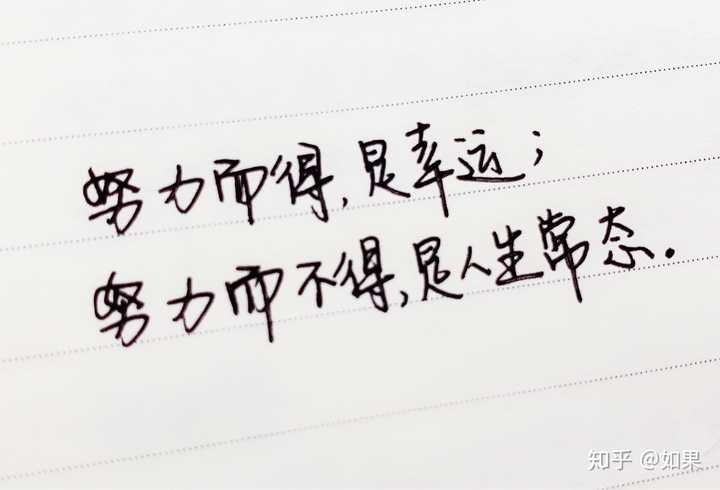 努力而得,是幸运;
努力而不得,是人生常态.
知乎 @如果